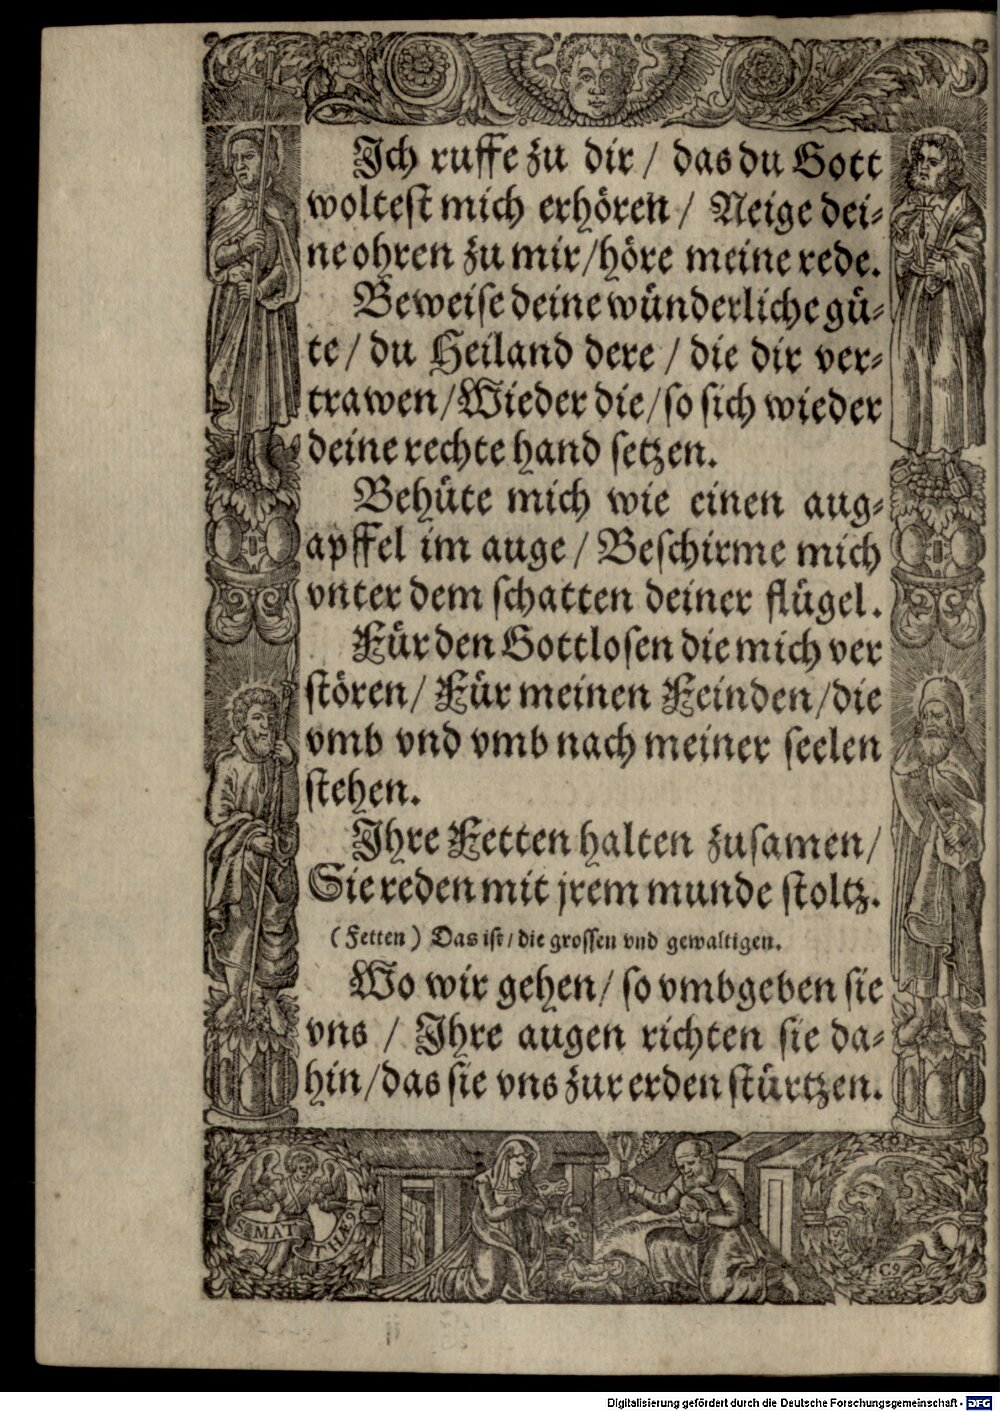 Ich ruffe zu dir / das du Gott
woltest mich erhören / Neige dei-
ne ohren zu mir / höre meine rede.
Beweise deine wünderliche gü-
te / du Heiland dere / die dir ver-
trawen / Wieder die / so sich wieder
deine rechte hand setzen.
Behüte mich wie einen aug-
apffel im auge / Beschirme mich
vnter dem schatten deiner flügel.
Für den Gottlosen die mich ver
stören / Für meinen Feinden / die
vmb vnd vmb nach meiner seelen
stehen.
Ihre Fetten halten zusamen /
Sie reden mit jrem munde stoltz.
(Fetten) Das ist / die grossen vnd gewaltigen.
Wo wir gehen / so vmbgeben sie
vns / Ihre augen richten sie da-
hin / das sie vns zur erden stürtzen.
S. MAT THÆ
Digitalisierung gefördert durch die Deutsche Forschungsgemeinschaft - DFG